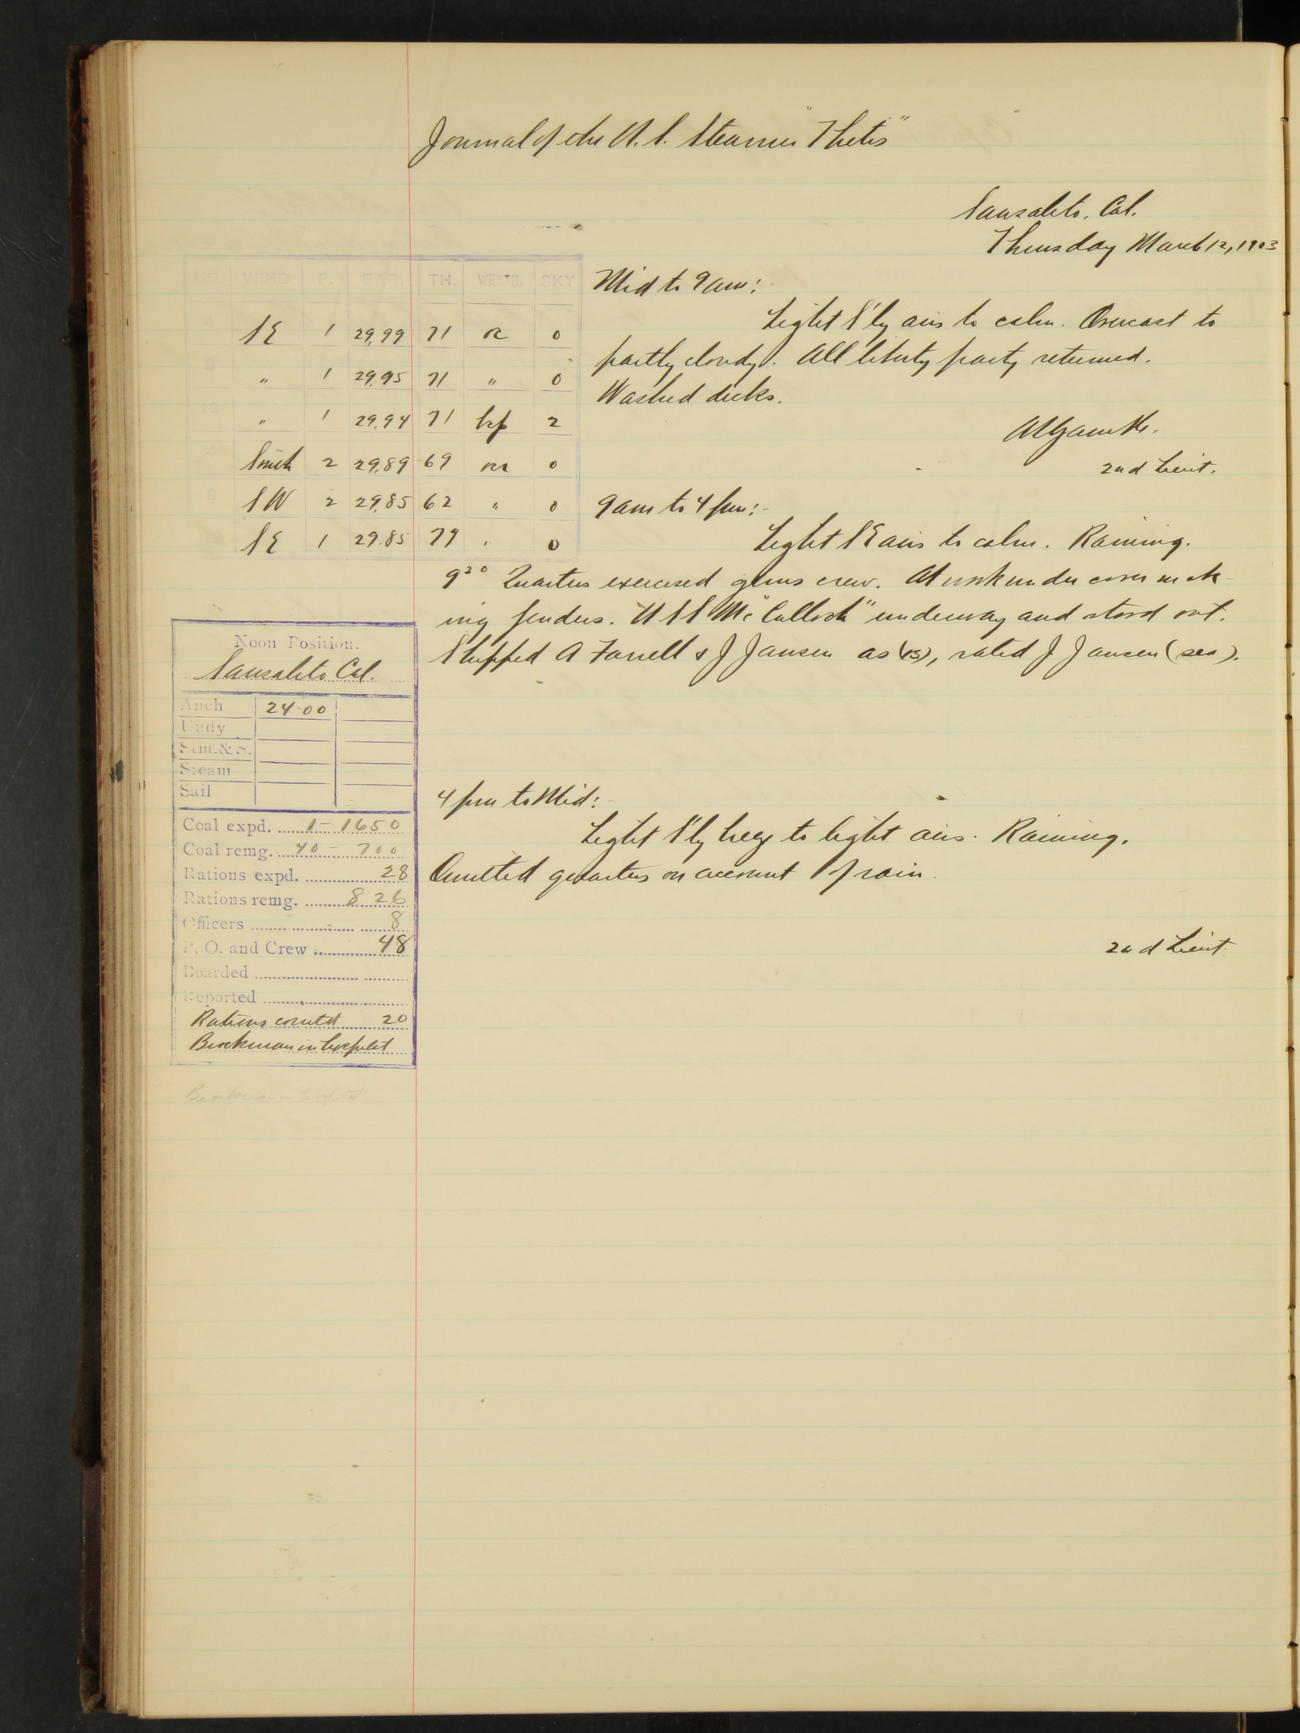 Journal of the U.S. Steamer "Thetis"
Sausalito, Cal.
Thursday March 12, 1903
HR. WIND F. BAR. TH. WEATH. SKY
SE 1 29,99 71 0
" 1 29,95 71 " 0
" 1 29,94 71 2
South 2 29,89 69 0
SW 2 29,85 62 " 0
SE 1 29.85 79 0
Mid to 9 am:-
Light S'ly airs to calm. Overcast to
partly cloudy. All liberty party returned.
Washed decks.
2nd Lieut.
9 am to 4 pm:-
Light SE airs to calm. Raining.
9³⁰ Quarters exercised guns crew. At work under cover mak-
ing fenders. "USS McCulloch" underway and stood out.
Shipped A Farrell & J Jansen as, rated J Jansen (sea).
Noon Position.
Sausalito Cal.
Anch 24-00
Undy
Stm. & S.
Steam
Sail
Coal expd. 1-1650
Coal remg. 40-700
Rations expd. 28
Rations remg. 826
Officers 8
P. O. and Crew 48
Boarded
Reported
Rations comtd 20
Brockman in hospital
4 pm to Mid:-
Light S'ly breeze to light airs. Raining.
Omitted quarters on account of rain.
2nd Lieut.
Brockman in hospital